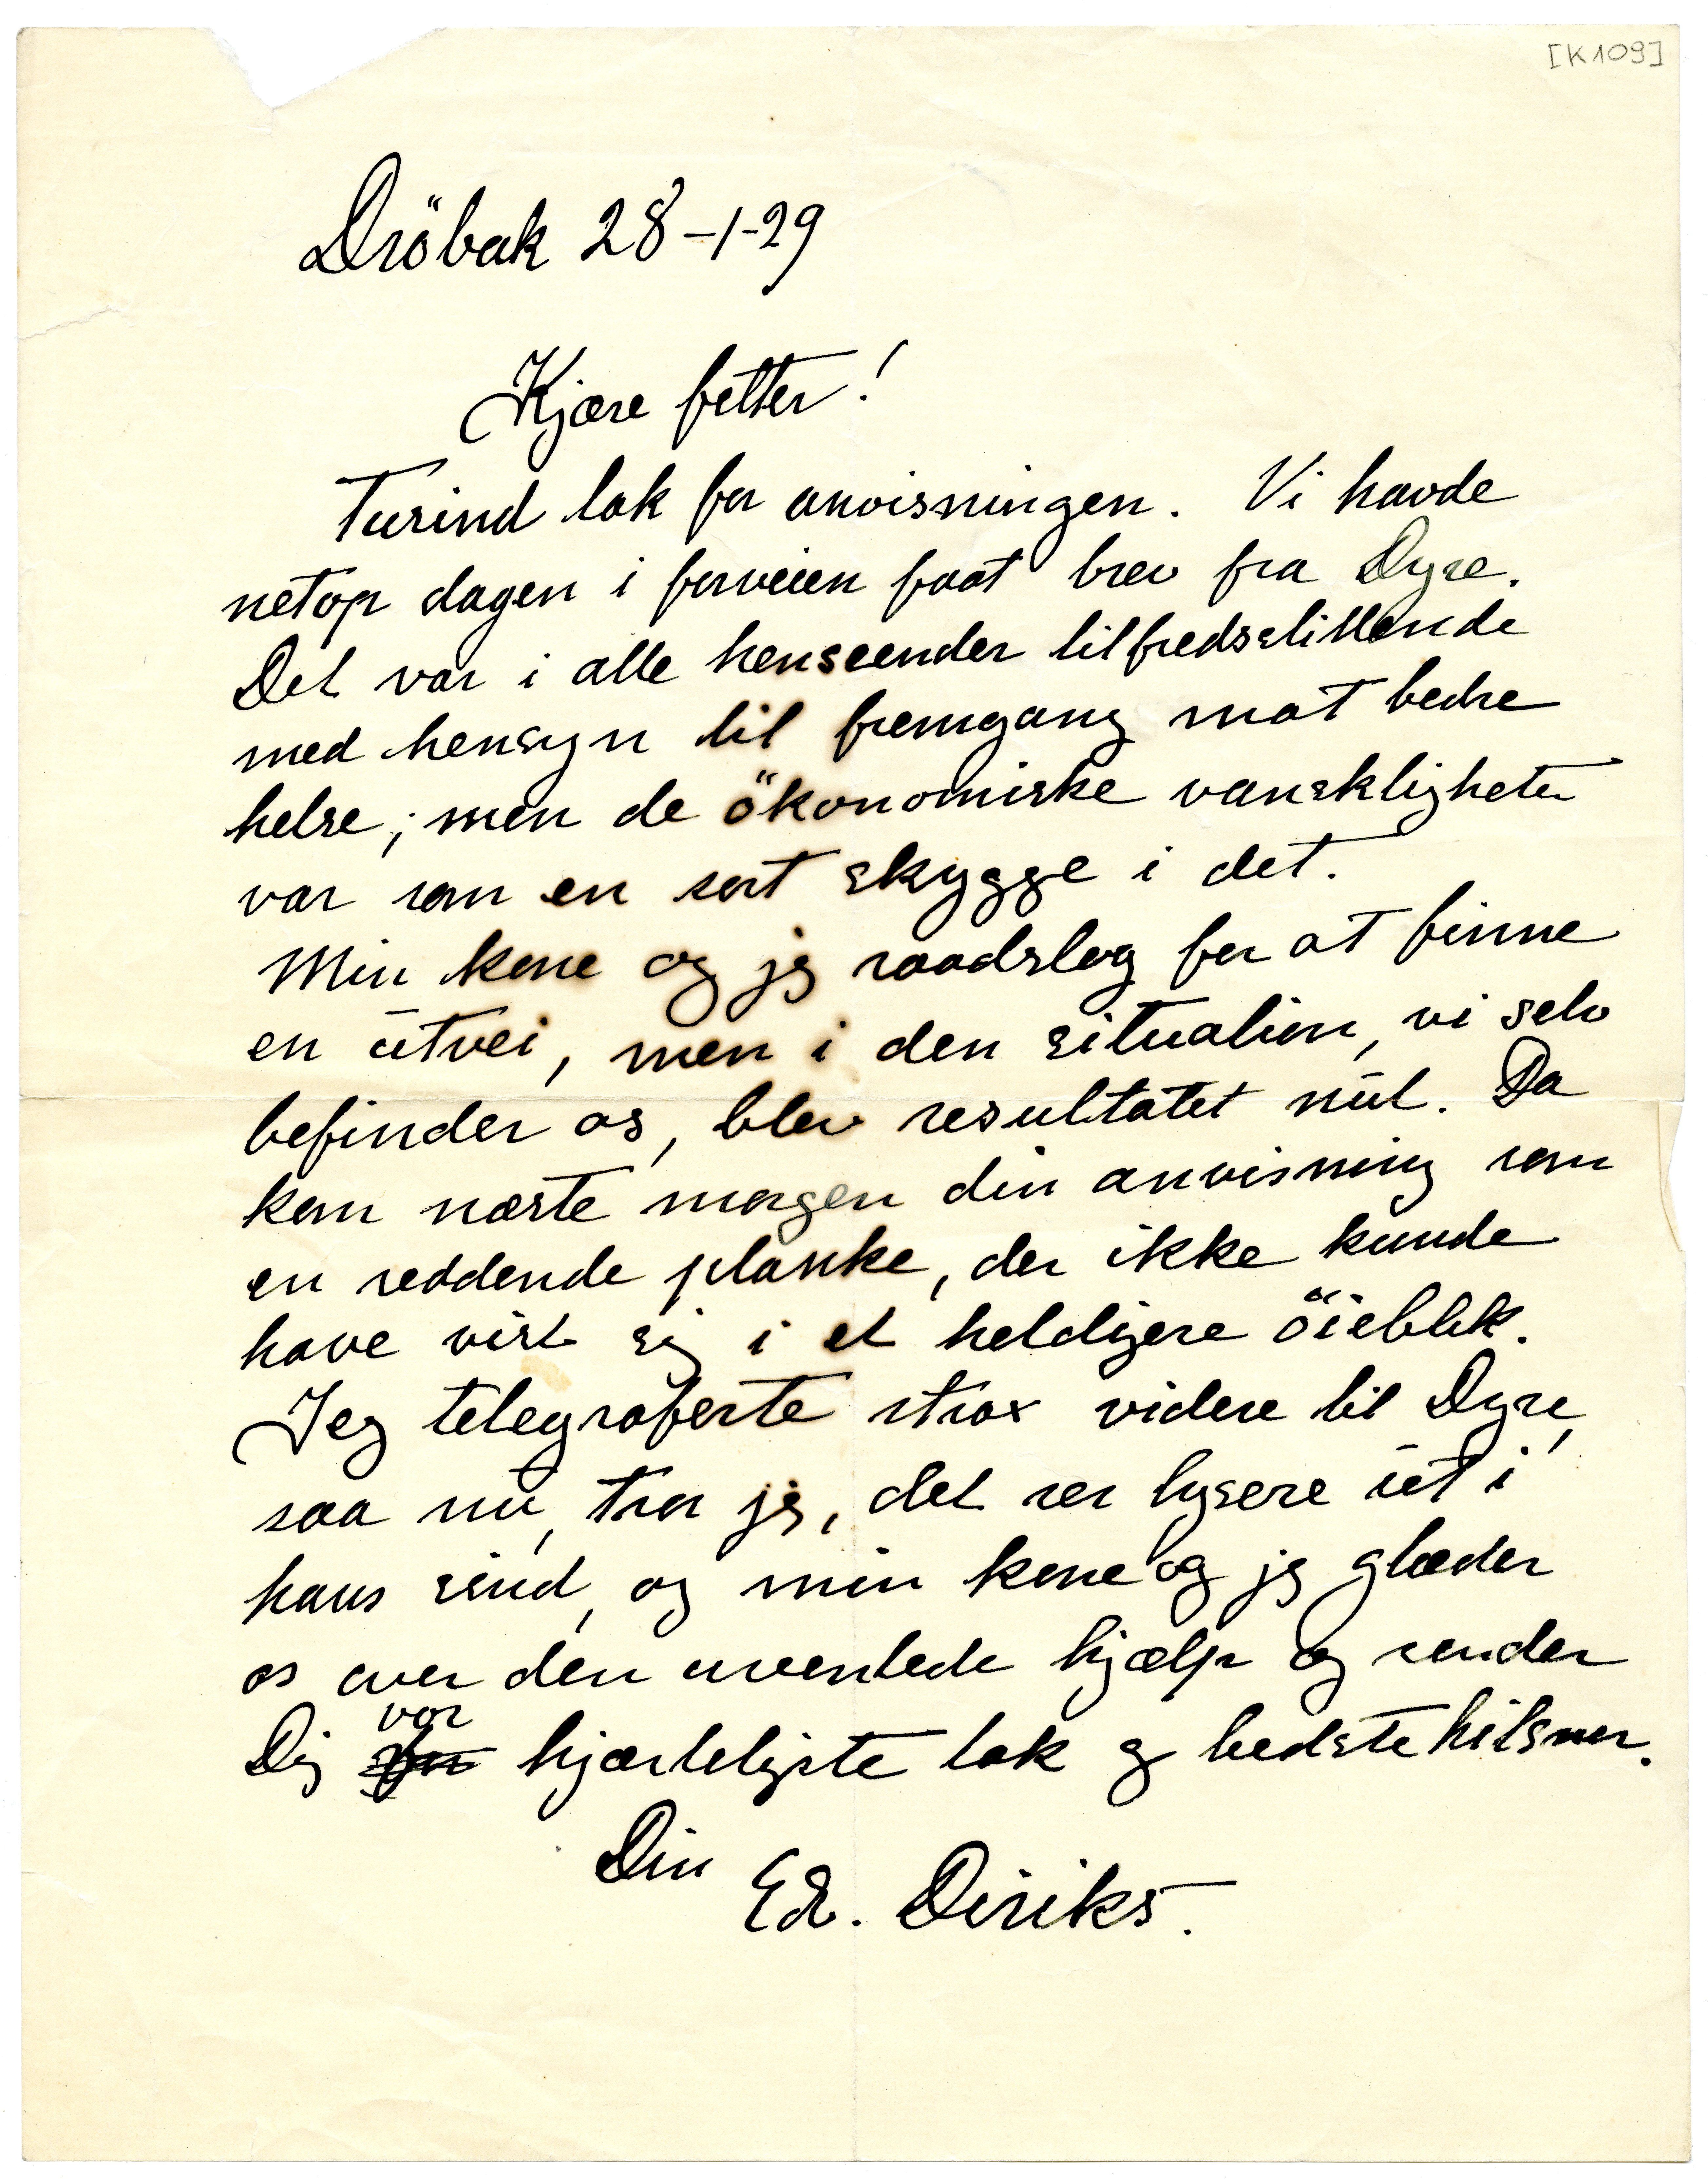 [K109]
Dröbak 28-1-29
Kjære fetter!
Tusind tak for anvisningen. Vi havde
netop dagen i forveien faat brev fra Dyre.
Det var i alle henseender tilfredsstillende
med hensyn til fremgang mot bedre
helse; men de ökonomiske vanskligheter
var som en sort skygge i det.
Min kone og jeg raadslog for at finne
en utvei, men i den situation, vi selv
befinder os, blev resultatet nul. Da
kom næste morgen din anvisning som
en reddende planke, der ikke kunde
have vist sig i et heldigere öieblik.
Jeg telegraferte strax videre til Dyre,
saa nu, tror jeg, det ser lysere ut i
hans sind, og min kone og jeg glæder
os over den uventede hjælp og sender
Dig vor hjærteligste tak og bedste hilsner.
Din Ed. Diriks.